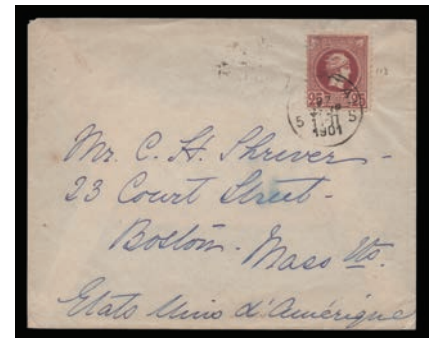 25 25
5 S
1901
Mr. C. H. Shriver -
23 Court Street -
Boston - Mass tts.
Etats Unis d'Amérique